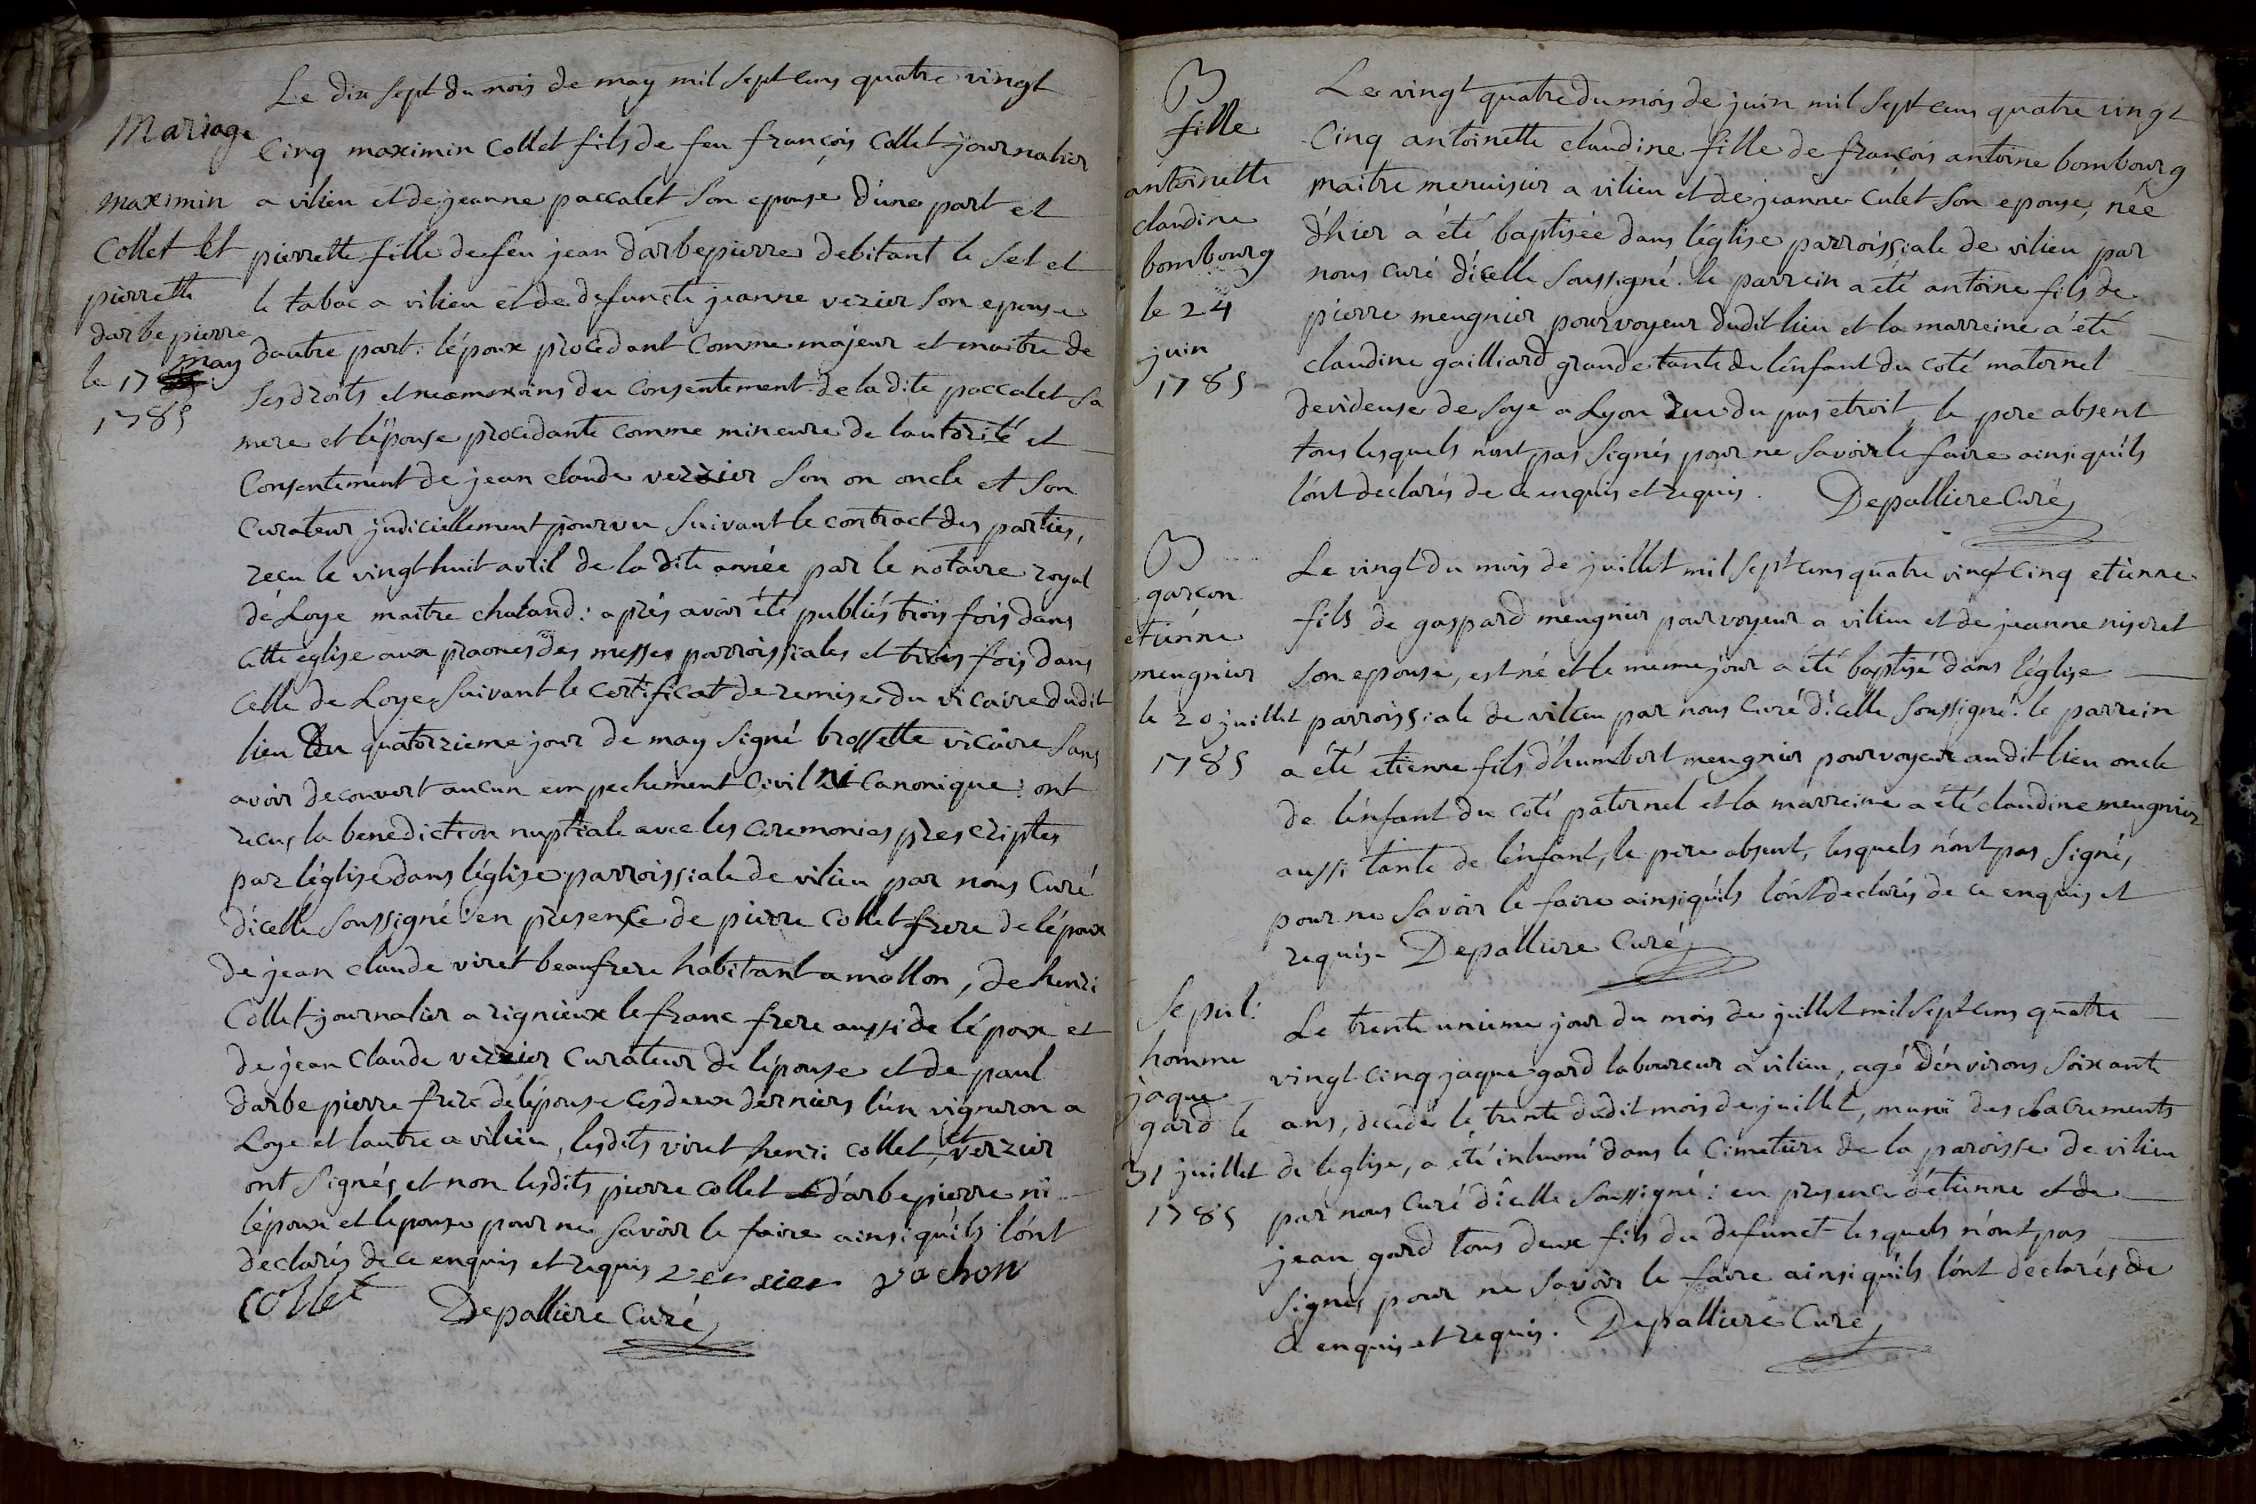 Mariage
maximin
Collet et
pierrette
darbepierre
le 17 may
1785
Le dix sept du mois de may mil sept cens quatre vingt
Cinq maximin Collet fils de feu françois Collet journalier
a vilieu et de jeanne paccalet son epouse d'une part et
pierrette fille de feu jean darbepierre debitant le sel et
le tabac a vilieu et de defuncte jeanne verzier son epouse
dautre part : lépoux procedant comme majeur et maitre de
ses droits et neamoins du consentement de la dite paccalet sa
mere et lépouse procedante comme mineure de lautorité et
Consentement de jean claude verzier son on oncle et son
Curateur judiciellement pourvu suivant le contract des parties,
recu le vingt huit avril de la dite année par le notaire royal
de Loye maitre chaland : après avoir été publiés trois fois dans
cette eglise aux prones des messes parroissiales et trois fois dans
celle de Loye suivant le certificat de remise du vicaire dudit
lieu du quatorzieme jour de may signé brossette vicaire sans
avoir decouvert aucun empechement civil ni canonique : ont
recus la benediction nuptiale avec les ceremonies prescriptes
par léglise dans léglise parroissiale de vilieu par nous Curé
dicelle soussigné : en presence de pierre Collet frere de lépoux
de jean claude viret beaufrere habitant a mollon, de henri
Collet journalier a rignieux le franc frere aussi de lépoux et
de jean Claude verzier Curateur de lépouse et de paul
darbepierre frere de lépouse ces deux derniers l'un vigneron a
Loye et lautre a vilieu, lesdits viret henri collet, et verzier
ont signés et non lesdits pierre collet d'arbepierre ni
lépoux et lepouse pour ne savoir le faire ainsi quils l'ont
declarés de ce enquis et requis verzier vachon
collet Depalliere Curé
B
fille
antoinette
claudine
bombourg
le 24
juin
1785
Le vingt quatre du mois de juin mil sept cens quatre vingt
Cinq antoinette claudine fille de françois antoine bombourg
maitre menuisier a vilieu et de jeanne Culet son epouse, née
d'hier a été baptisée dans léglise parroissiale de vilieu par
nous curé dicelle soussigné. le parrein a été antoine fils de
pierre meugnier pourvoyeur dudit lieu et la marreine a été
claudine gailliard grande tante de lénfant du coté maternel
devideuse de soye a Lyon rue du pas etroit, le pere absent
tous lesquels n'ont pas signés pour ne savoir le faire ainsi quils
l'ont declarés de ce enquis et requis. Depalliere Curé
B
garçon
etienne
meugnier
le 20 juillet
1785
Le vingt du mois de juillet mil sept cens quatre vingt Cinq etienne
fils de gaspard meugnier pourvoyeur a vilieu et de jeanne niseret
son epouse, est né et le meme jour a été baptisé dans léglise
parroissiale de vilieu par nous Curé dicelle soussigné : le parrein
a été etienne fils d'humbert meugnier pourvoyeur audit lieu oncle
de lénfant du coté paternel et la marreine a été claudine meugnier
aussi tante de lénfant, le pere absent, lesquels n'ont pas signés
pour ne savoir le faire ainsi quils l'ont declarés de ce enquis et
requis. Depalliere Curé
Sepul:
homme
jaque
gard le
31 juillet
1785
Le trente unieme jour du mois de juillet mil sept cens quatre
vingt cinq jaque gard laboureur a vilieu, agé d'environs soixante
ans, decedé le trente dudit mois de juillet, muni des sacrements
de leglise, a été inhumé dans le Cimetiere de la paroisse de vilieu
par nous Curé dicelle soussigné : en presence d'etienne et de
jean gard tous deux fils du defunct lesquels n'ont pas
signés pour ne savoir le faire ainsi quils l'ont declarés de
ce enquis et requis. Depalliere Curé